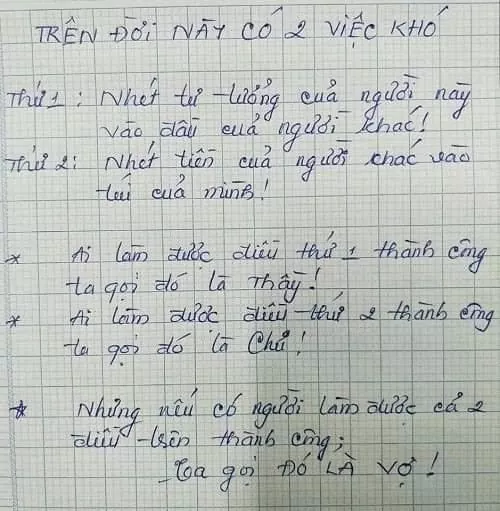 TRÊN ĐỜI NÀY CÓ 2 VIỆC KHÓ
Thứ 1 : Nhét tư tưởng của người này
vào đầu của người khác!
Thứ 2 : Nhét tiền của người khác vào
túi của mình!
* Ai làm được điều thứ 1 thành công
ta gọi đó là Thầy!
* Ai làm được điều thứ 2 thành công
ta gọi đó là Chủ!
* Nhưng nếu có người làm được cả 2
điều trên thành công;
_Ta gọi ĐÓ LÀ VỢ!